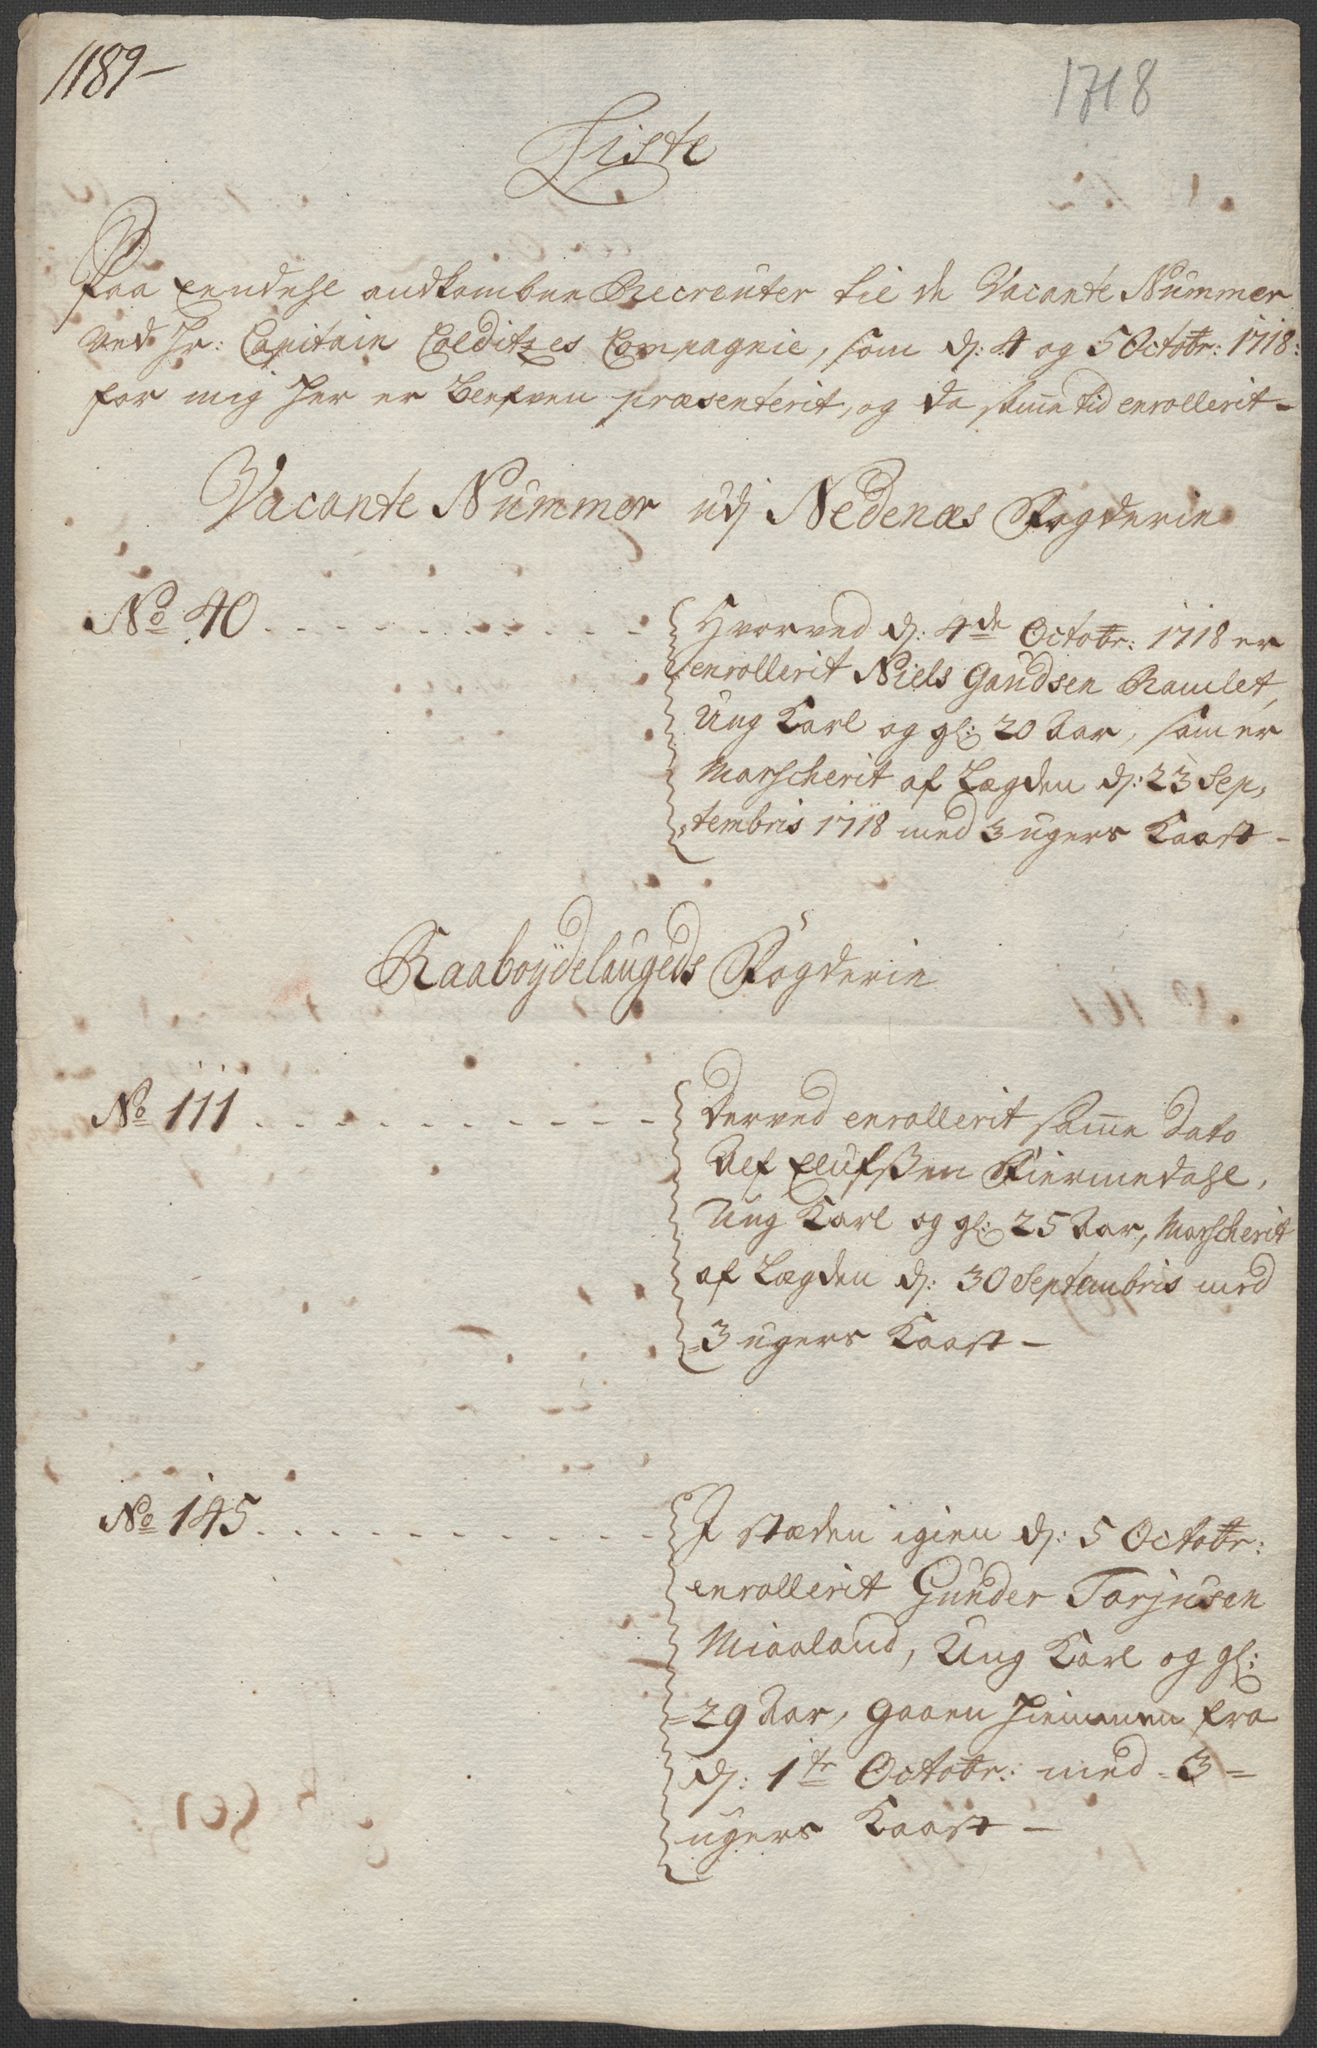 1189-
1718
Liste
Paa Eendehl andkombne Recreuter til de Vacante Nummer
ved Hr: Capitain Colditzes Compagnie, som d: 4 og 5 Octobr: 1718:
for mig her er blefven præsenterit, og da samme tid enrollerit -
Vacante Nummer udj Nedenæs Fogderie
No 40
Hvorved d: 4de Octobr: 1718 er
enrollerit Niels Gaudsen Ramlet,
Ung Karl og gl: 20 Aar, som er
Marscherit af Lægden d: 23 Sep,
,tembris 1718 med 3 ugers Kaast -
Raaboÿdelaugeds Fogderie
No 111
Derved enrollerit samme dato
Alf Elufsßen Fiermedahl,
Ung Karl og gl: 25 Aar, Marscherit
af Lægden d: 30 Septembris med
=3 ugers Kaast -
No 145
I stæden igien d: 5 Octobr:
enrollerit Gunder Torjusen
Miaaland, Ung Karl og gl:
=29 Aar, gaaen hiemmen fra
d: 1te Octobr: med 3=
ugers Kaast -